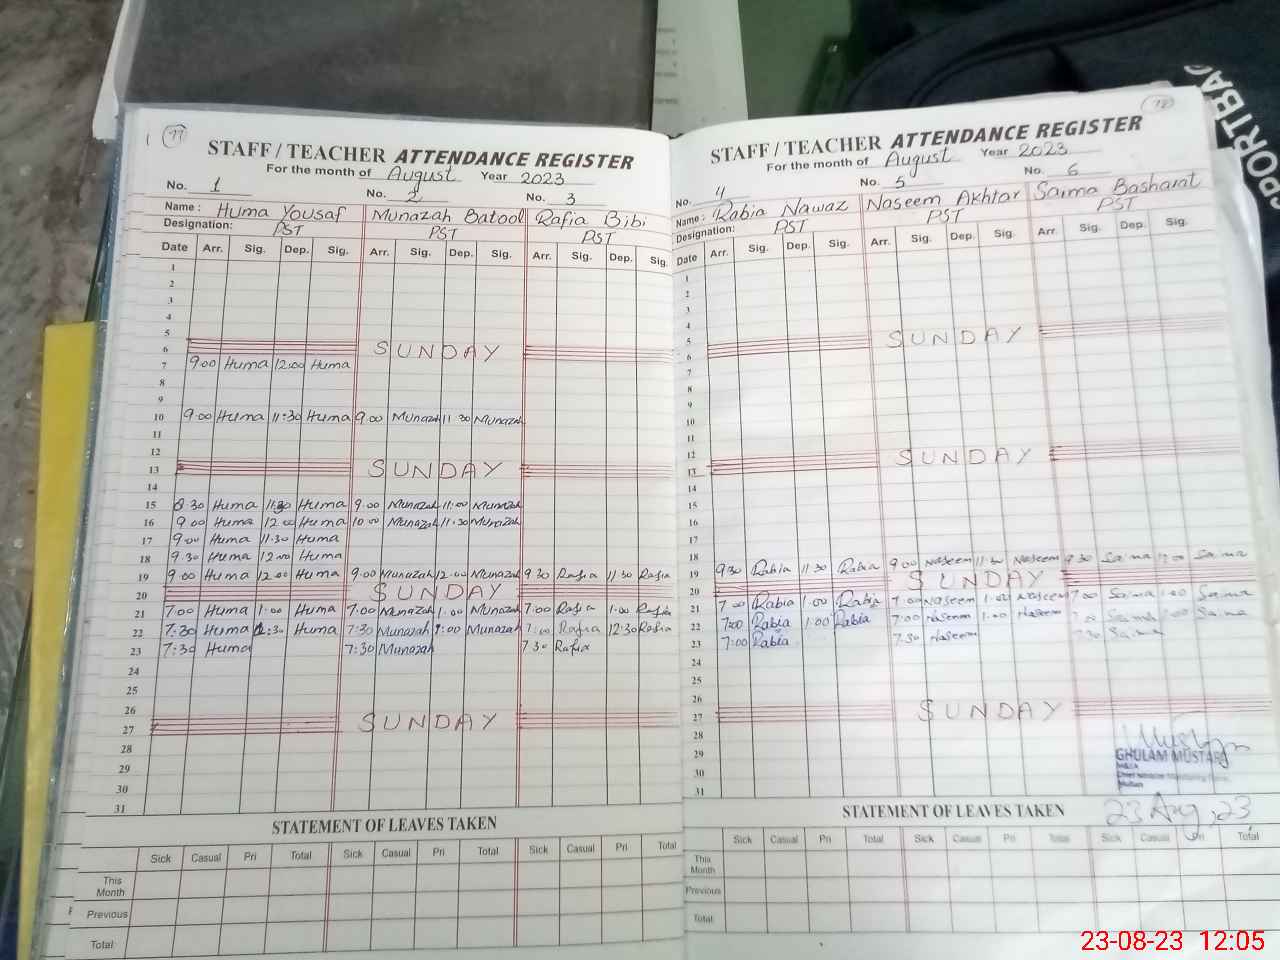 77
STAFF / TEACHER ATTENDANCE REGISTER
For the month of August Year 2023
No. 1 No. 2 No. 3
Name : Huma Yousaf Munazah Batool Rafia Bibi
Designation: PST PST PST
Date Arr. Sig. Dep. Sig. Arr. Sig. Dep. Sig. Arr. Sig. Dep. Sig.
1
2
3
4
5
6 SUNDAY
7 9:00 Huma 12:00 Huma
8
9
10 9:00 Huma 11:30 Huma 9:00 Munazah 11:30 Munazah
11
12
13 SUNDAY
14
15 8:30 Huma 11:30 Huma 9:00 Munazah 11:00 Munazah
16 9:00 Huma 12:00 Huma 10:00 Munazah 11:30 Munazah
17 9:00 Huma 11:30 Huma
18 9:30 Huma 12:00 Huma
19 9:00 Huma 12:00 Huma 9:00 Munazah 12:00 Munazah 9:30 Rafia 11:30 Rafia
20 SUNDAY
21 7:00 Huma 1:00 Huma 7:00 Munazah 1:00 Munazah 7:00 Rafia 1:00 Rafia
22 7:30 Huma 12:30 Huma 7:30 Munazah 1:00 Munazah 7:00 Rafia 12:30 Rafia
23 7:30 Huma 7:30 Munazah 7:30 Rafia
24
25
26
27 SUNDAY
28
29
30
31
STATEMENT OF LEAVES TAKEN
Sick Casual Pri Total Sick Casual Pri Total Sick Casual Pri Total
This Month
Previous
Total:
78
STAFF / TEACHER ATTENDANCE REGISTER
For the month of August Year 2023
No. 4 No. 5 No. 6
Name : Rabia Nawaz Naseem Akhtar Saima Basharat
Designation: PST PST PST
Date Arr. Sig. Dep. Sig. Arr. Sig. Dep. Sig. Arr. Sig. Dep. Sig.
1
2
3
4
5 SUNDAY
6
7
8
9
10
11
12 SUNDAY
13
14
15
16
17
18
19 9:30 Rabia 11:30 Rabia 9:00 Naseem 11:30 Naseem 9:30 Saima 12:00 Saima
20 SUNDAY
21 7:00 Rabia 1:00 Rabia 7:00 Naseem 1:00 Naseem 7:00 Saima 1:00 Saima
22 7:00 Rabia 1:00 Rabia 7:00 Naseem 1:00 Naseem Saima 1:00 Saima
23 7:00 Rabia 7:30 Naseem 7:30 Saima
24
25
26
27 SUNDAY
28
29
30
31
GHULAM MUSTAFA
23 Aug, 23
STATEMENT OF LEAVES TAKEN
Sick Casual Pri Total Sick Casual Pri Total Sick Casual Pri Total
This Month
Previous
Total:
SPORTBAG
23-08-23 12:05